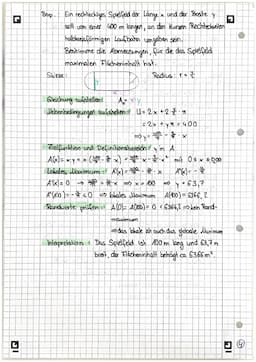 Bsp. Ein rechteckiges Spielfeld der Länge x und der Breite y
soll von einer 400 m langen, an den kurzen Rechteckseiten
halbkreisförmigen Laufbahn umgeben sein.
Bestimme die Abmessungen, für die das Spielfeld
maximalen Flächeninhalt hat.
Skizze: Radius: r = y/2
Gleichung aufstellen: A = x · y
Nebenbedingungen aufstellen: U = 2x + 2 y/2 · π
= 2x + y π = 400
⇒ y = 400/π - 2/π · x
Zielfunktion und Definitionsbereich: in A
Lokales Maximum:
A'(x) = 0 ⇒ x = 100 ⇒ y = 63,7
⇒ lokales Maximum A(100) = 6366,2
Randwerte prüfen: A(0) = A(200) = 0 < 6366,2 ⇒ kein Rand-
maximum
⇒ das lokale ist auch das globale Maximum
Interpretation: Das Spielfeld ist 100 m lang und 63,7 m
breit, der Flächeninhalt beträgt ca. 6366 m²